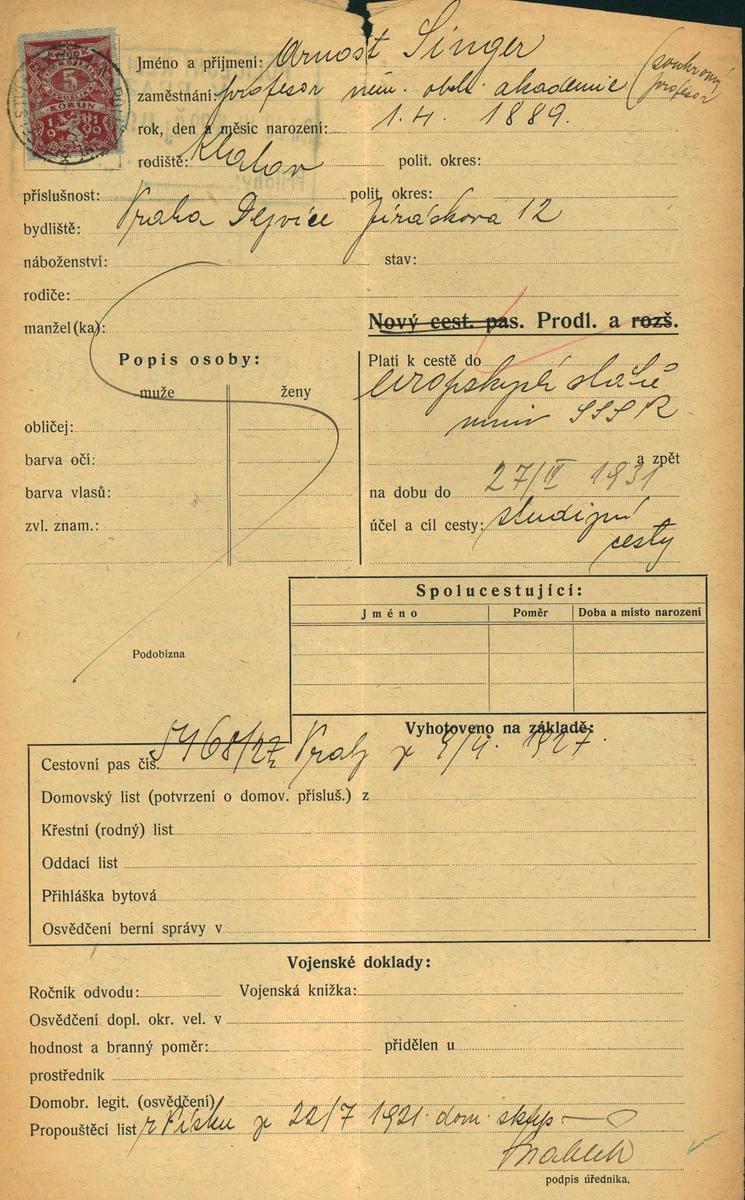 5
KORUN
1919
Jméno a příjmení: Arnošt Singer
zaměstnání: profesor něm. obch. akademie (soukromý
profesor
rok, den a měsíc narození: 1. 4. 1889.
rodiště: Klatov polit. okres:
příslušnost: polit. okres:
bydliště: Praha Dejvice Jiráskova 12
náboženství: stav:
rodiče:
manžel (ka):
Nový cest. pas. Prodl. a rozš.
Popis osoby:
muže ženy
Platí k cestě do
evropských států
mimo SSSR
obličej:
barva očí:
a zpět
barva vlasů:
na dobu do 27/ 1931
zvl. znam.:
účel a cíl cesty: studijní
cesty
Spolucestující:
Jméno Poměr Doba a místo narození
Podobizna
Vyhotoveno na základě:
Cestovní pas čís. 1927
Domovský list (potvrzení o domov. přísluš.) z
Křestní (rodný) list
Oddací list
Přihláška bytová
Osvědčení berní správy v
Vojenské doklady:
Ročník odvodu: Vojenská knížka:
Osvědčení dopl. okr. vel. v
hodnost a branný poměr: přidělen u
prostředník
Domobr. legit. (osvědčení)
Propouštěcí list z Písku ze 22/7 1921. dom.
podpis úředníka.